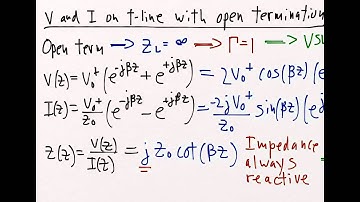 V and I on t-line with open termination
Open term → Z_L = ∞ → Γ = 1 → VS
V(z) = V₀⁺ (e^{-jβz} + e^{+jβz}) = 2V₀⁺ cos(βz) (e
I(z) = V₀⁺/Z₀ (e^{-jβz} − e^{+jβz}) = -2jV₀⁺/Z₀ sin(βz) (ej
Z(z) = V(z)/I(z) = j Z₀ cot(βz) Impedance
always
reactive